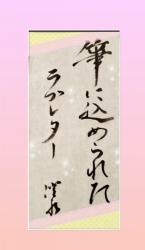 筆に込められた
ラブレター